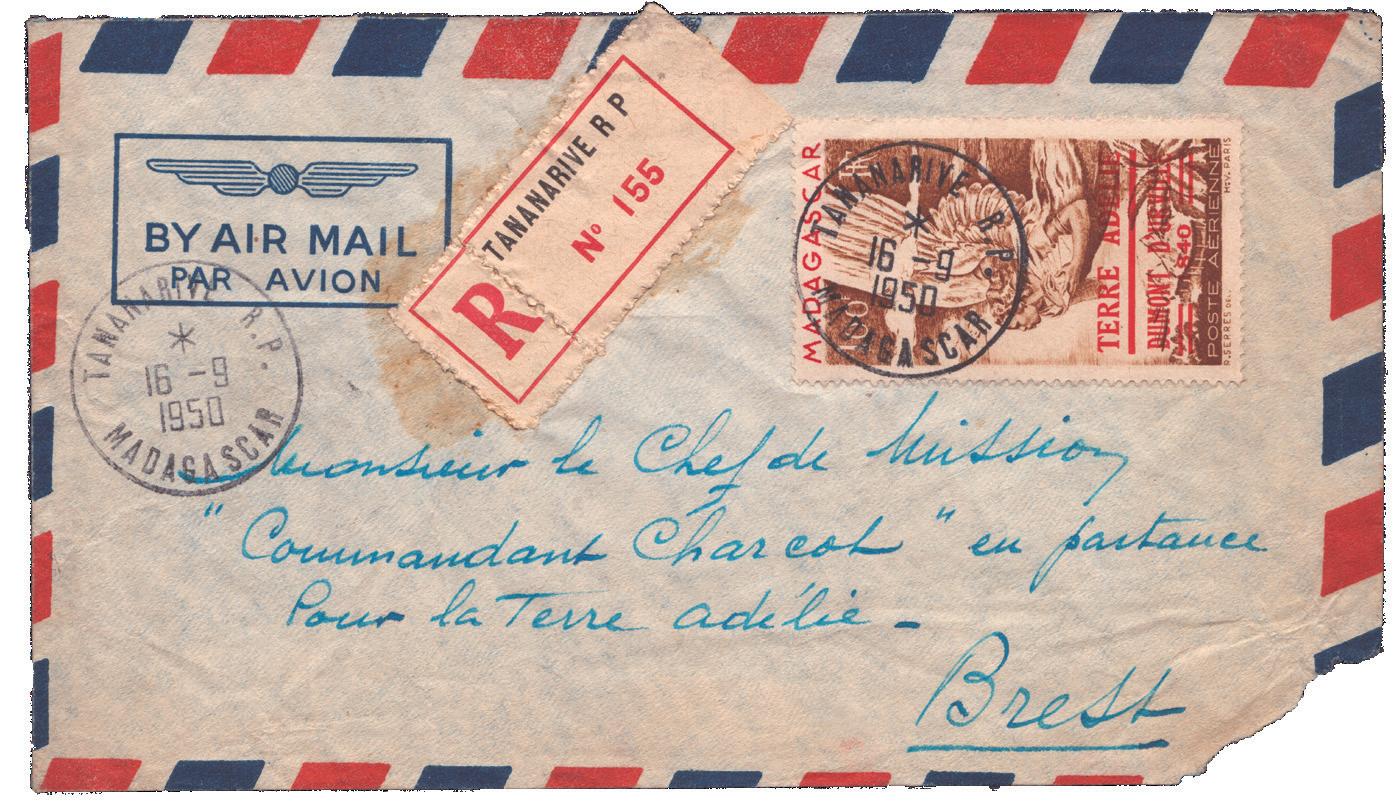 BY AIR MAIL
PAR AVION
TANANARIVE R P
Nº 155
R
TANANARIVE R.P.
16 - 9
1950
MADAGASCAR
MADAGASCAR
TERRE ADÉLIE
DUMONT D'URVILLE
1840
POSTE AÉRIENNE
R. SERRES DEL.
HÉL. PARIS
TANANARIVE R.P.
16 - 9
1950
MADAGASCAR
Monsieur le Chef de Mission
"Commandant Charcot" en partance
Pour la Terre adélie -
Brest